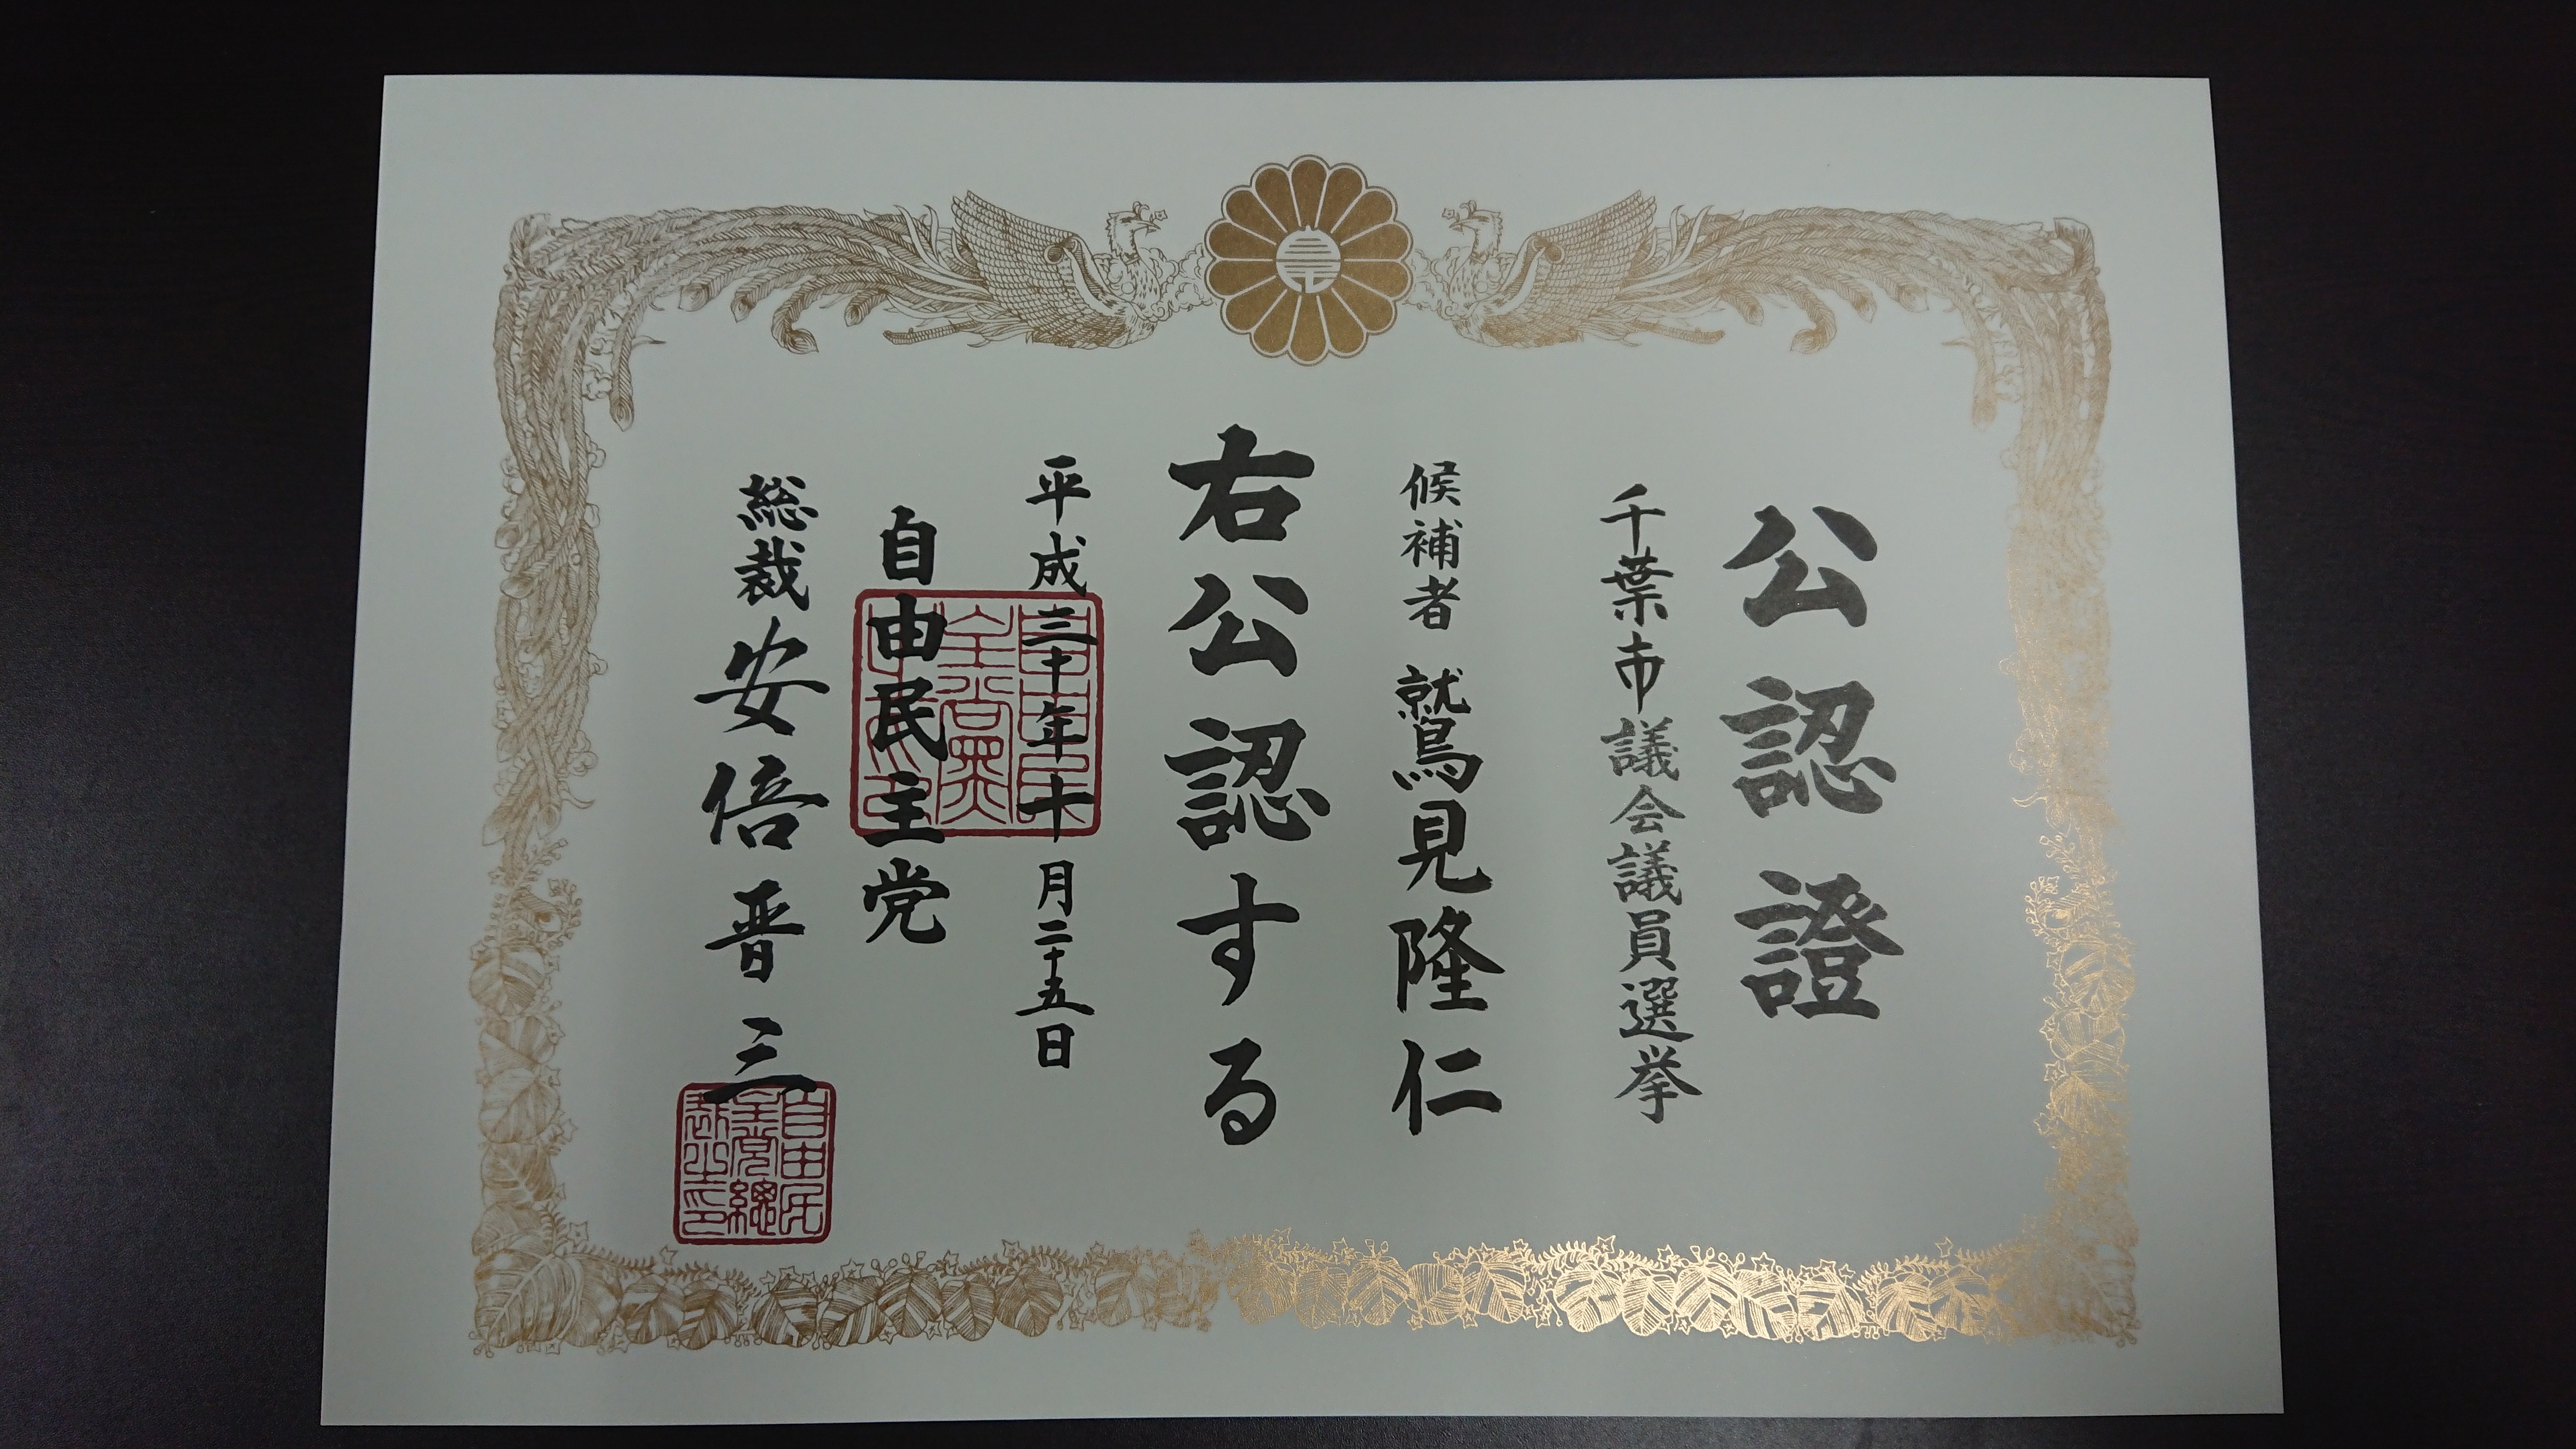 公認證
千葉市議会議員選挙
候補者 鷲見隆仁
右公認する
平成三十年十月二十五日
自由民主党
総裁 安倍晋三